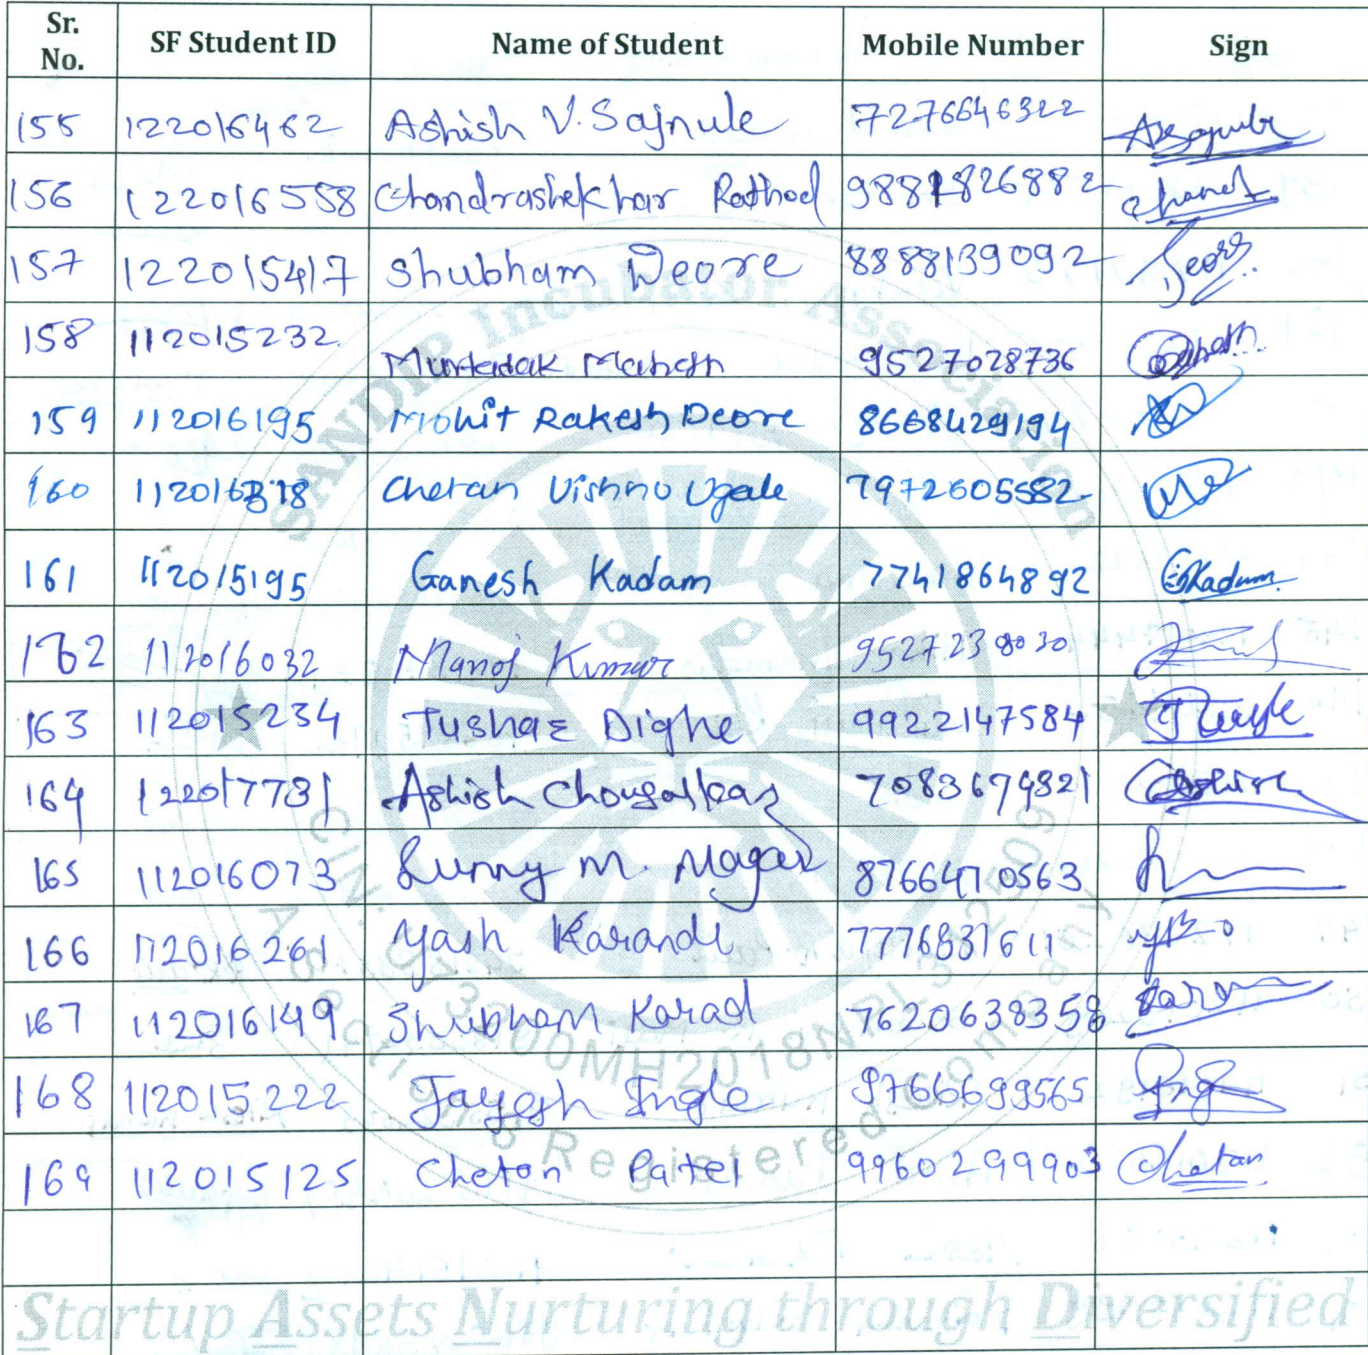 Sr. No. SF Student ID Name of Student Mobile Number Sign
155 122016462 Ashish V. Sajnule 7276646322
156 122016558 Chandrashekhar Rathod 9881826882 Chand
157 122015417 Shubham Deore 8888139092 Deore
158 112015232 Murtadak Mahesh 9527028736
159 112016195 Mohit Rakesh Deore 8668429194
160 112016318 Chetan Vishnu Ugale 7972605582
161 112015195 Ganesh Kadam 7741864892 GKadam
162 112016032 Manoj Kumar 9527238030
163 112015234 Tushar Dighe 9922147584
164 122017731 Ashish Chougalkar 7083674321 Ashish
165 112016073 Sunny M. Magar 8766470563
166 112016261 Yash Karande 7776831611
167 112016149 Shubham Karad 7620638358
168 112015222 Jayesh Ingle 9766699565 Ingle
169 112015125 Chetan Patel 9960299903 Chetan
SANDIP Incubator Association
A Section 8 Registered Company
Startup Assets Nurturing through Diversified